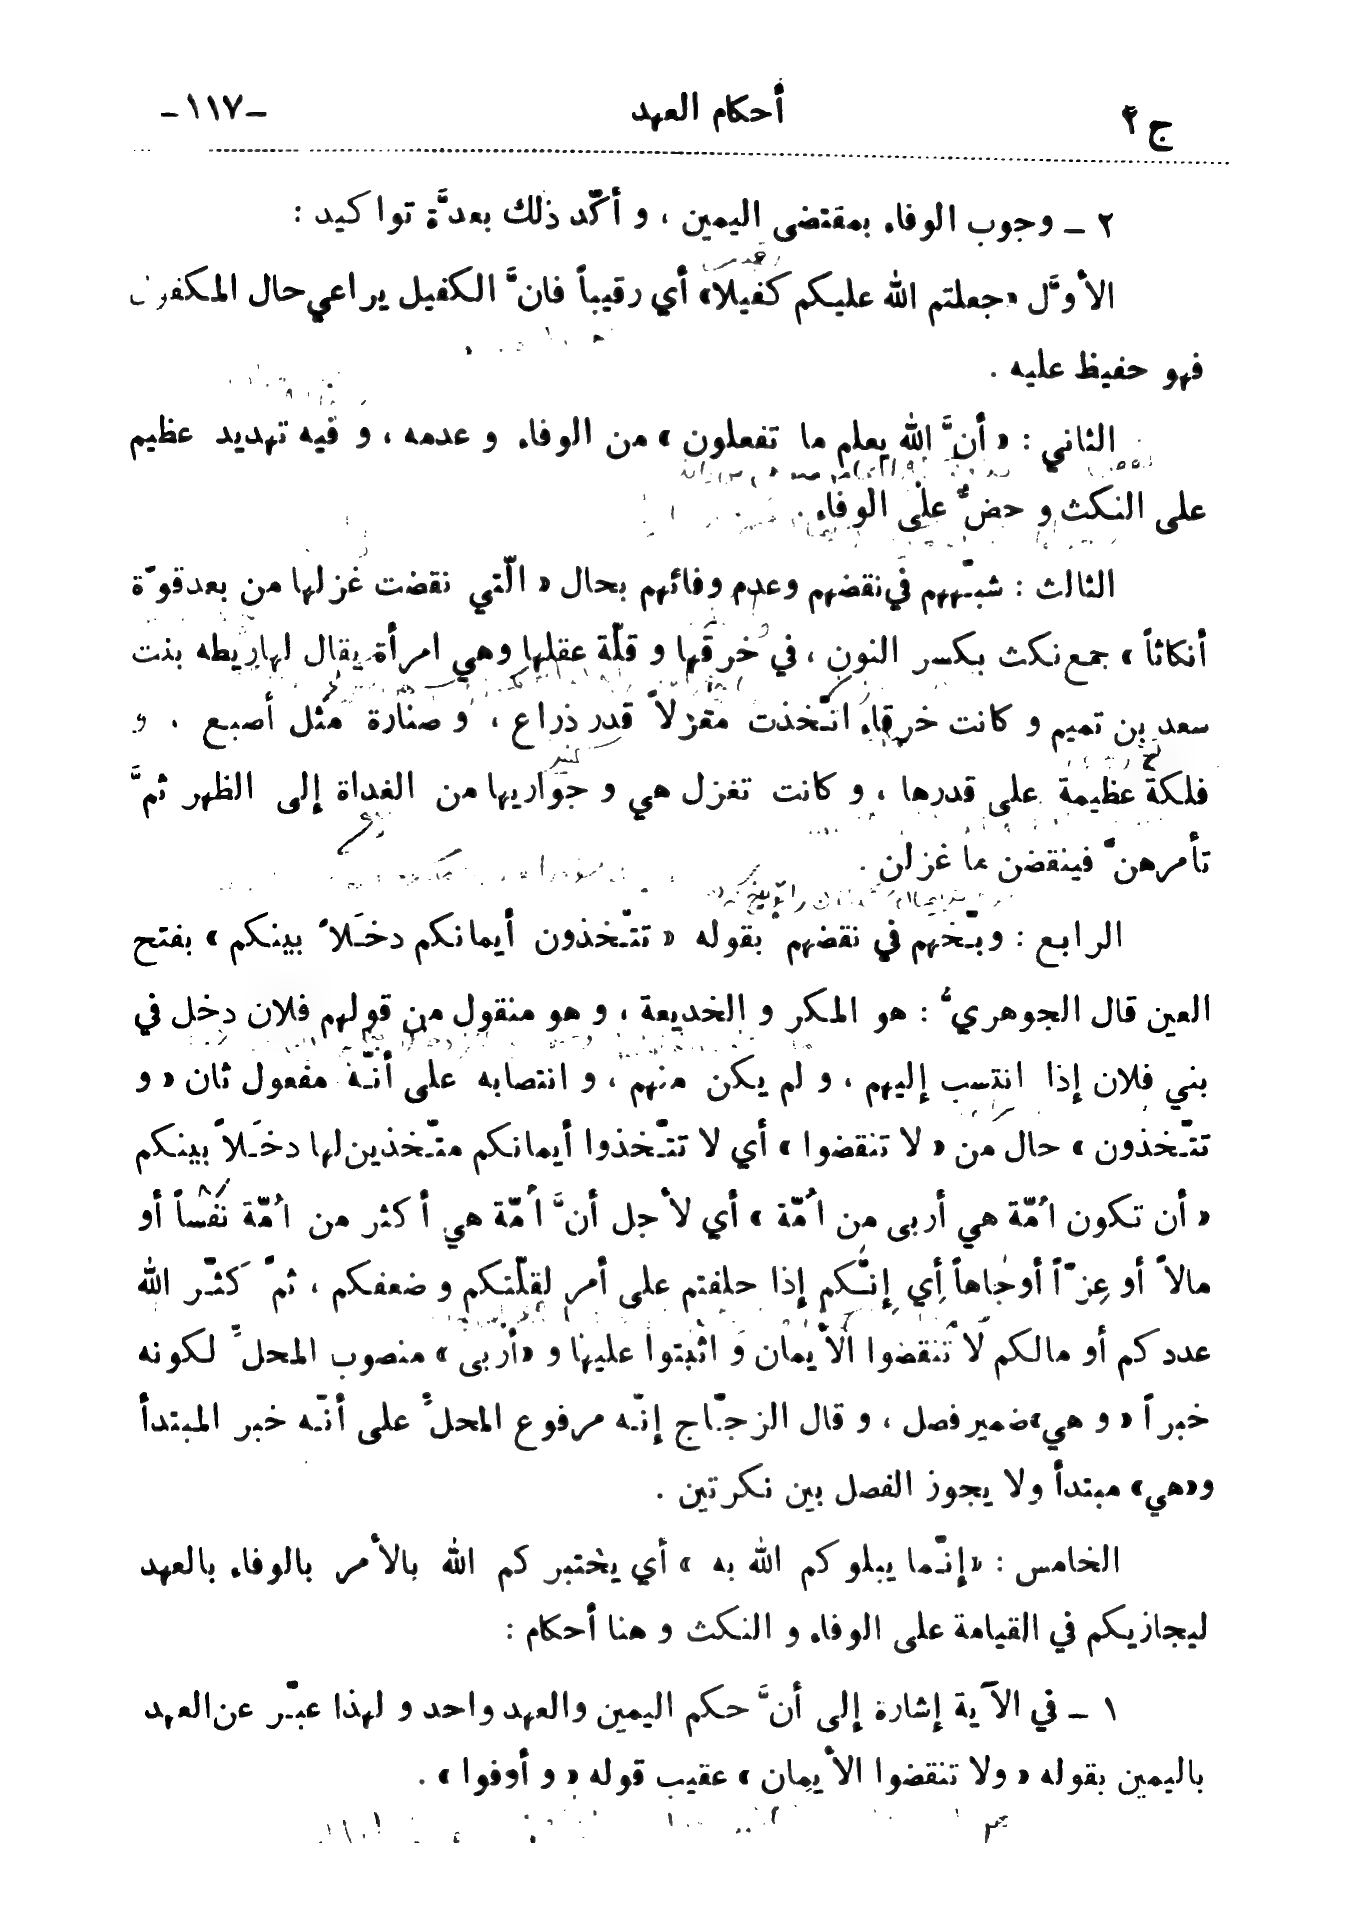 ج ٢ أحكام العهد -١١٧-
٢ ـ وجوب الوفاء بمقتضى اليمين ، و أكّد ذلك بعدَّة تواكيد :
الأوَّل «جعلتم الله عليكم كفيلا» أي رقيباً فانَّ الكفيل يراعي حال المكفول
فهو حفيظ عليه .
الثاني : « أنَّ الله يعلم ما تفعلون » من الوفاء و عدمه ، و فيه تهديد عظيم
على النكث و حضٌّ على الوفاء .
الثالث : شبّههم في نقضهم وعدم وفائهم بحال « الّتي نقضت غزلها من بعد قوَّة
أنكاثاً » جمع نكث بكسر النون ، في خرقها و قلّة عقلها وهي امرأة يقال لها ريطه بنت
سعد بن تميم و كانت خرقاء اتّخذت مغزلاً قدر ذراع ، و صنارة مثل أصبع ، و
فلكة عظيمة على قدرها ، و كانت تغزل هي و جواريها من الغداة إلى الظهر ثمَّ
تأمرهنّ فينقضن ما غزلن .
الرابع : وبّخهم في نقضهم بقوله « تتّخذون أيمانكم دخَلاً بينكم » بفتح
العين قال الجوهريُّ : هو المكر و الخديعة ، و هو منقول من قولهم فلان دخل في
بني فلان إذا انتسب إليهم ، و لم يكن منهم ، و انتصابه على أنّه مفعول ثان « و
تتّخذون » حال من « لا تنقضوا » أي لا تتّخذوا أيمانكم متّخذين لها دخَلاً بينكم
« أن تكون اُمّة هي أربى من اُمّة » أي لأجل أنَّ اُمّة هي أكثر من اُمّة نفساً أو
مالاً أو عزّاً أوجاهاً أي إنّكم إذا حلفتم على أمر لقلّتكم و ضعفكم ، ثمّ كثّر الله
عددكم أو مالكم لا تنقضوا الأيمان و اثبتوا عليها و «أربى» منصوب المحلّ لكونه
خبراً « و هي» ضمير فصل ، و قال الزجّاج إنّه مرفوع المحلّ على أنّه خبر المبتدأ
و«هي» مبتدأ ولا يجوز الفصل بين نكرتين .
الخامس : «إنّما يبلوكم الله به » أي يختبركم الله بالأمر بالوفاء بالعهد
ليجازيكم في القيامة على الوفاء و النكث و هنا أحكام :
١ ـ في الآية إشارة إلى أنَّ حكم اليمين والعهد واحد و لهذا عبّر عن العهد
باليمين بقوله « ولا تنقضوا الأيمان » عقيب قوله « و أوفوا » .